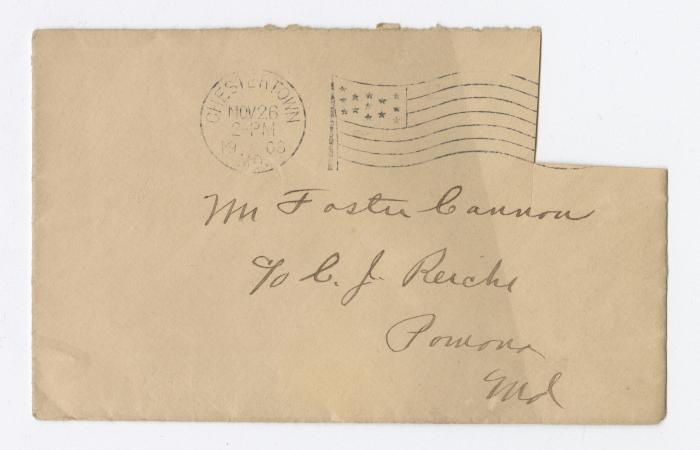 CHESTERTOWN
NOV 26
2-PM
1908
MD.
Mr Foster Cannon
c/o C. J. Reichs
Pomona
Md